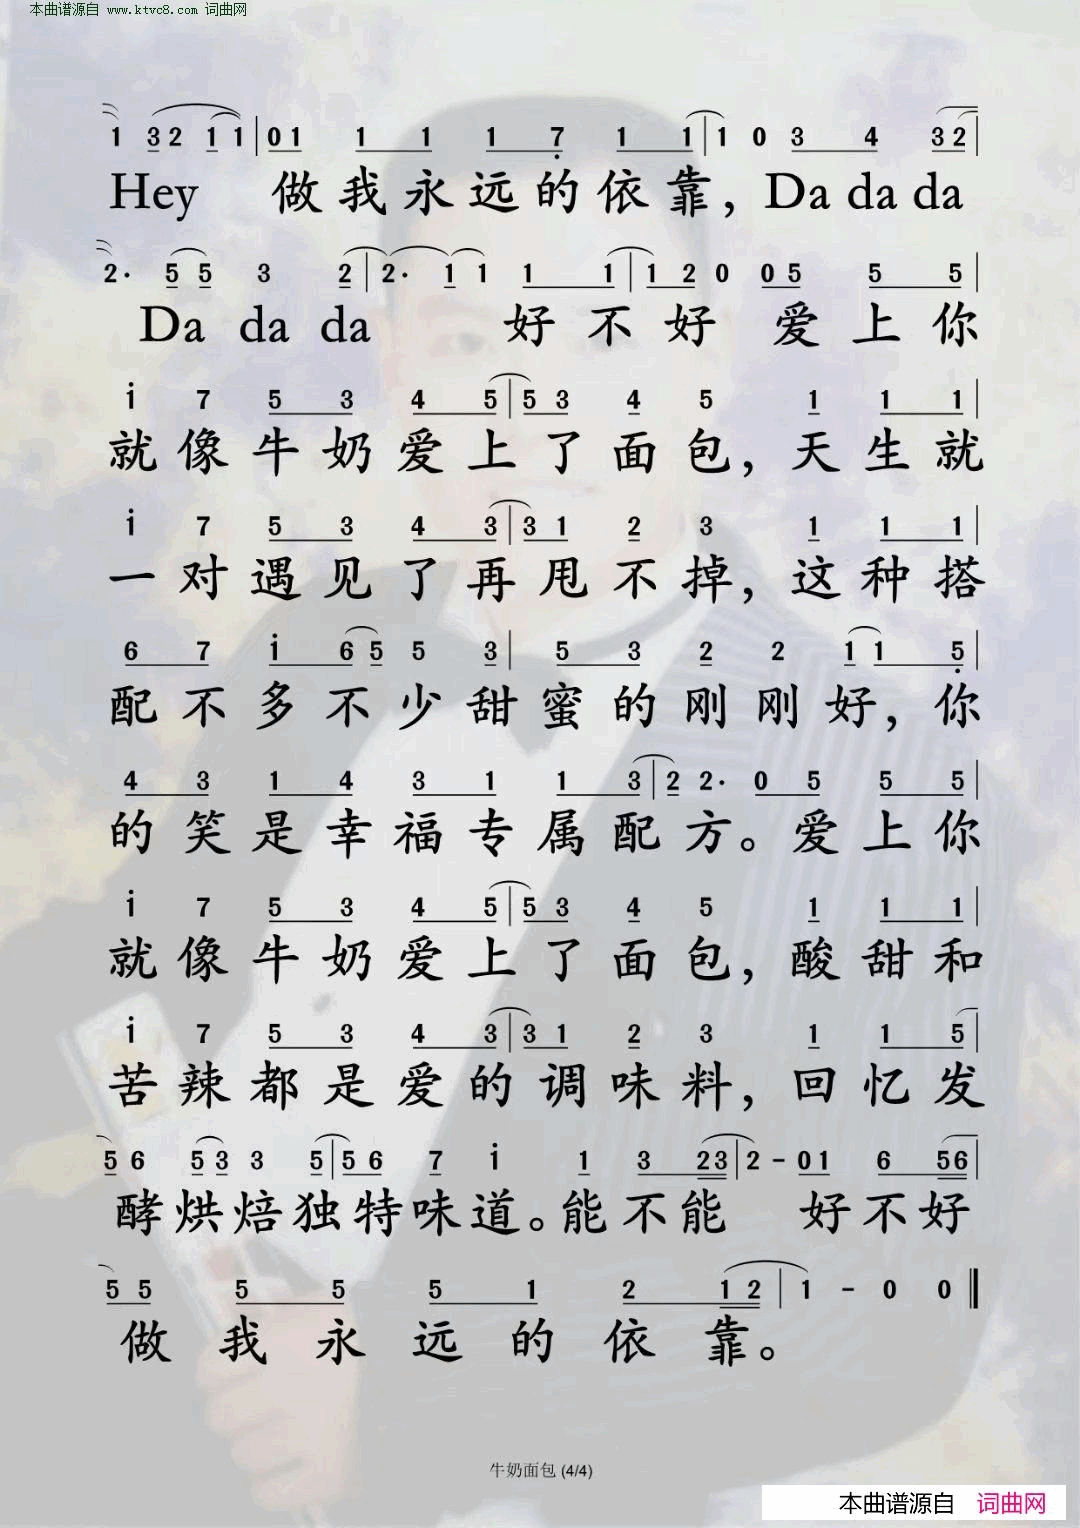 本曲谱源自 www.ktvc8.com 词曲网
1 3 2 1 1 | 0 1 1 1 1 7 1 1 | 1 0 3 4 3 2 |
Hey 做我永远的依靠，Da da da
2· 5 5 3 2 | 2· 1 1 1 1 | 1 2 0 0 5 5 5 |
Da da da 好不好 爱上你
i 7 5 3 4 5 | 5 3 4 5 1 1 1 |
就像牛奶爱上了面包，天生就
i 7 5 3 4 3 | 3 1 2 3 1 1 1 |
一对遇见了再甩不掉，这种搭
6 7 i 6 5 5 3 | 5 3 2 2 1 1 5 |
配不多不少甜蜜的刚刚好，你
4 3 1 4 3 1 1 3 | 2 2· 0 5 5 5 |
的笑是幸福专属配方。爱上你
i 7 5 3 4 5 | 5 3 4 5 1 1 1 |
就像牛奶爱上了面包，酸甜和
i 7 5 3 4 3 | 3 1 2 3 1 1 5 |
苦辣都是爱的调味料，回忆发
5 6 5 3 3 5 | 5 6 7 i 1 3 2 3 | 2 - 0 1 6 5 6 |
酵烘焙独特味道。能不能 好不好
5 5 5 5 5 1 2 1 2 | 1 - 0 0 ‖
做我永远的依靠。
牛奶面包 (4/4)
本曲谱源自 词曲网